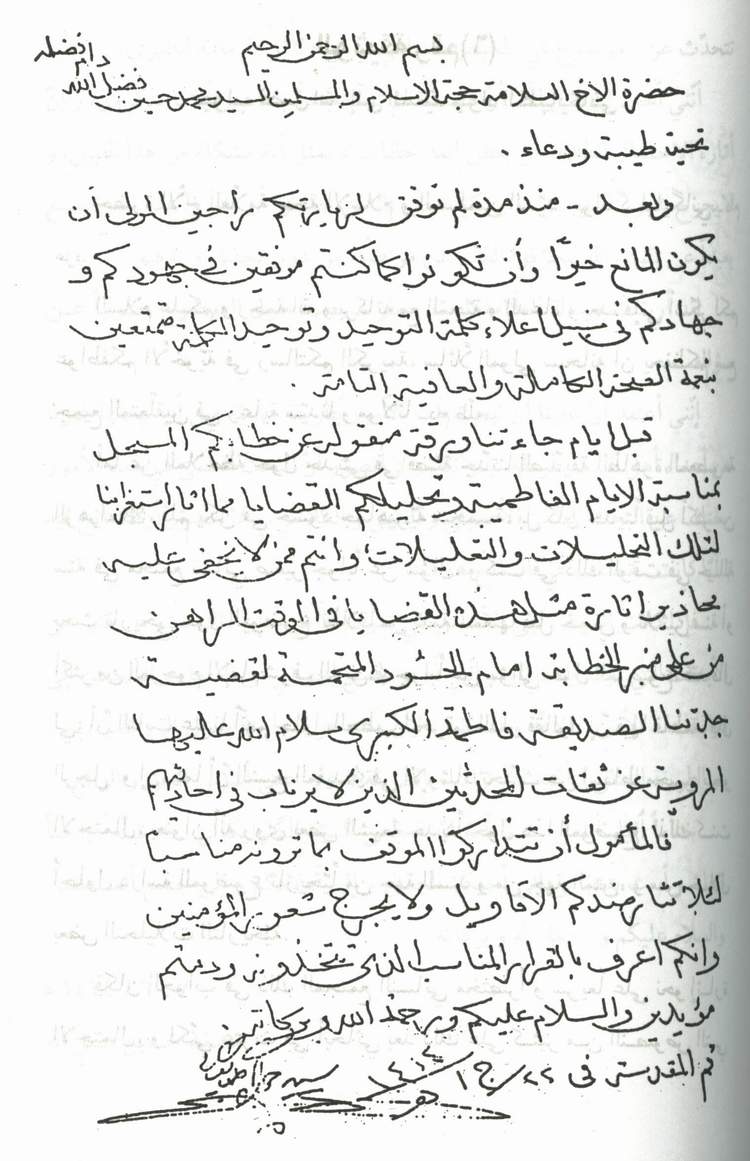 بسم الله الرحمن الرحيم
حضرة الاخ العلامة حجة الاسلام والمسلمين السيد محمد حسين فضل الله دام فضله
تحية طيبة ودعاء .
وبعد - منذ مدة لم نوفق لزيارتكم راجين المولى أن
يكون المانع خيرًا وأن تكونوا كما كنتم موفقين في جهودكم و
جهادكم في سبيل اعلاء كلمة التوحيد وتوحيد الكلمة متمتعين
بنعمة الصحة الكاملة والعافية التامة .
قبل ايام جاءتنا ورقة منقولة عن خطابكم المسجل
بمناسبة الايام الفاطمية وتحليلكم القضايا مما اثار استغرابنا
لتلك التحليلات والتعليلات وانتم ممن لا يخفى عليه
محاذير اثارة مثل هذه القضايا في الوقت الراهن
من على منبر الخطابة امام الحشود المتحمسة لقضية
جدتنا الصديقة فاطمة الكبرى سلام الله عليها
المروية عن ثقات المحدثين الذين لا يرتاب في احاديثهم
فالمأمول أن تتداركوا الموقف بما ترونه مناسبًا
لئلا تثار ضدكم الاقاويل ولا يجرح شعور المؤمنين
وانكم اعرف بالقرار المناسب الذي تتخذونه ودمتم
مؤيدين والسلام عليكم ورحمة الله وبركاته
قم المقدسة في ٢٢/ج١/١٤١٤ هـ